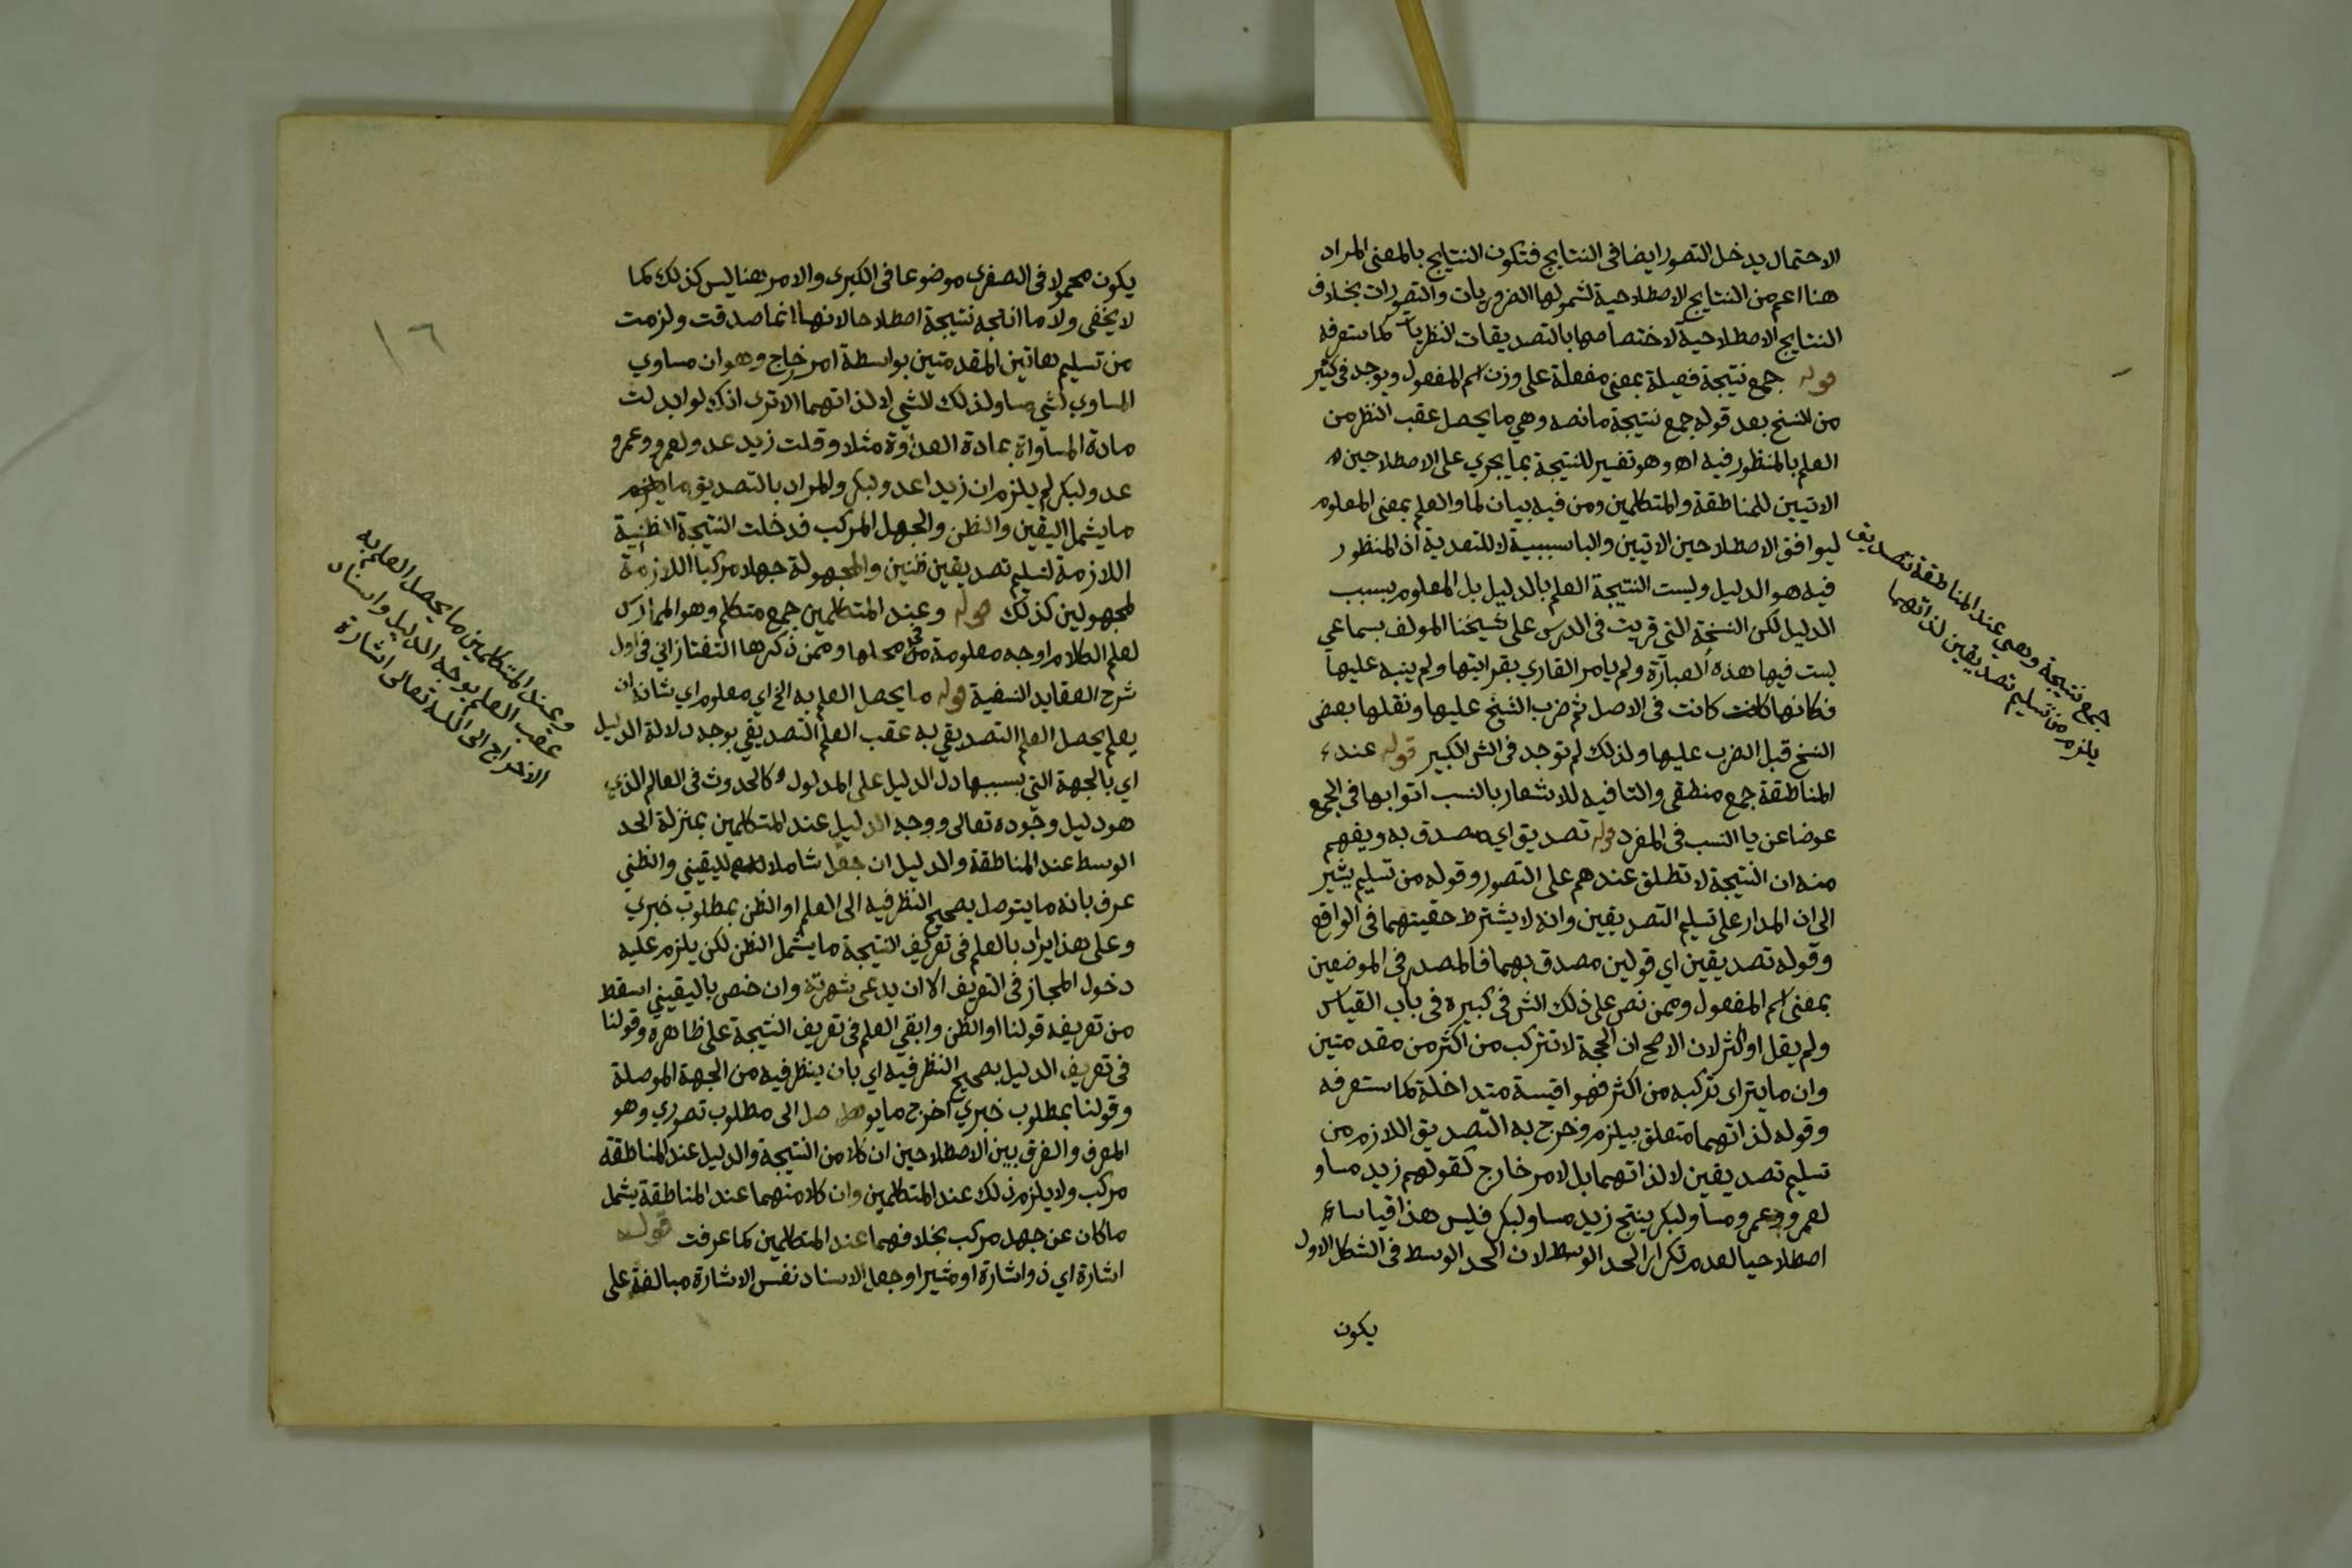 الاحتمال يدخل التصور ايضا في النتايج فتكون النتايج بالمعنى المراد
هنا اعم من النتايج الاصطلاحية لشمولها الضروريات والتصورات بخلاف
النتايج الاصطلاحية لاختصاصها بالتصديقات النظريات كما ستعرفه
قوله جمع نتيجة فعيلة بمعنى مفعلة على وزن اسم المفعول ويوجد في كثير
من النسخ بعد قوله جمع نتيجة ما نصه وهي ما يحصل عقب النظر من
العلم بالمنظور فيه اه وهو تفسير للنتيجة بما يجري على الاصطلاحين
الاتيين للمناطقة والمتكلمين ومن فيه بيان لما والعلم بمعنى المعلوم
ليوافق الاصطلاحين الاتيين والبا سببية لا للتعدية اذ المنظور
فيه هو الدليل وليست النتيجة العلم بالدليل بل المعلوم بسبب
الدليل لكن النسخة التي قريت في الدرس على شيخنا المولف بسماعي
ليست فيها هذه العبارة ولم يامر القاري بقرايتها ولم ينبه عليها
فكانها كانت كانت في الاصل ثم ضرب الشيخ عليها ونقلها بعض
النسخ قبل الضرب عليها ولذلك لم توجد في الش الكبير قوله عند
المناطقة جمع منطقي والتا فيه للاشعار بالنسب اتوا بها في الجمع
عوضا عن يا النسب في المفرد قوله تصديق اي مصدق به ويفهم
منه ان النتيجة لا تطلق عندهم على التصور وقوله من تسليم يشير
الى ان المدار على تسليم التصديقين وانه لا يشترط حقيتهما في الواقع
وقوله تصديقين اي قولين مصدق بهما فالمصدر في الموضعين
بمعنى اسم المفعول وممن نص على ذلك الش في كبيره في باب القياس
ولم يقل او اكثر لان الاصح ان الحجة لا تتركب من اكثر من مقدمتين
وان ما يتراى تركبه من اكثر فهو اقيسة متداخلة كما ستعرفه
وقوله لذاتهما متعلق بيلزم وخرج به التصديق اللازم من
تسليم تصديقين لا لذاتهما بل لامر خارج كقولهم زيد مساو
لعمرو وعمرو مساو لبكر ينتج زيد مساو لبكر فليس هذا قياسا
اصطلاحيا لعدم تكرار الحد الوسط لان الحد الوسط في الشكل الاول
يكون
جمع نتيجة وهي عند المناطقة تصديق
يلزم من تسليم تصديقين لذاتهما
١٦
يكون محمولا في الصغرى موضوعا في الكبرى والامر هنا ليس كذلك كما
لا يخفى ولا ما انتجه نتيجة اصطلاحا لانها انما صدقت ولزمت
من تسليم هاتين المقدمتين بواسطة امر خارج وهو ان مساوي
المساوي لشي مساو لذلك الشي لا لذاتهما الاترى انك لو ابدلت
مادة المساواة بمادة العداوة مثلا وقلت زيد عدو لعمرو وعمرو
عدو لبكر لم يلزم ان زيدا عدو لبكر والمراد بالتصديق
ما يشمل اليقين والظن والجهل المركب فدخلت النتيجة الظنية
اللازمة لتسليم تصديقين ظنين والمجهولة جهلا مركبا اللازمة
لمجهولين كذلك قوله وعند المتكلمين جمع متكلم وهو الممارس
لعلم الكلام لاوجه معلومة من محلها وممن ذكرها التفتازاني في اول
شرح العقايد النسفية قوله ما يحصل العلم به الخ اي معلوم اي شانه ان
يعلم يحصل العلم التصديقي به عقب العلم التصديقي بوجه دلالة الدليل
اي بالجهة التي بسببها دل الدليل على المدلول كالحدوث في العالم الذي
هو دليل وجوده تعالى ووجه الدليل عند المتكلمين بمنزلة الحد
الوسط عند المناطقة والدليل ان جعل شاملا لليقيني والظني
عرف بانه ما يتوصل بصحيح النظر فيه الى العلم او الظن بمطلوب خبري
وعلى هذا يراد بالعلم في تعريف النتيجة ما يشمل الظن لكن يلزم عليه
دخول المجاز في التعريف الا ان يدعى شهرته وان خص باليقيني اسقط
من تعريفه قولنا او الظن وابقي العلم في تعريف النتيجة على ظاهره وقولنا
في تعريف الدليل بصحيح النظر فيه اي بان ينظر فيه من الجهة الموصلة
وقولنا بمطلوب خبري اخرج ما يوصل الى مطلوب تصوري وهو
المعرف والفرق بين الاصطلاحين ان كلا من النتيجة والدليل عند المناطقة
مركب ولا يلزم ذلك عند المتكلمين وان كلا منهما عند المناطقة يشمل
ما كان عن جهل مركب بخلافهما عند المتكلمين كما عرفت قوله
اشارة اي ذو اشارة او مشير او جعل الاسناد نفس الاشارة مبالغة على
وعند المتكلمين ما يحصل العلم به
عقب العلم بوجه الدليل واسناد
الاخراج الى الله تعالى اشارة